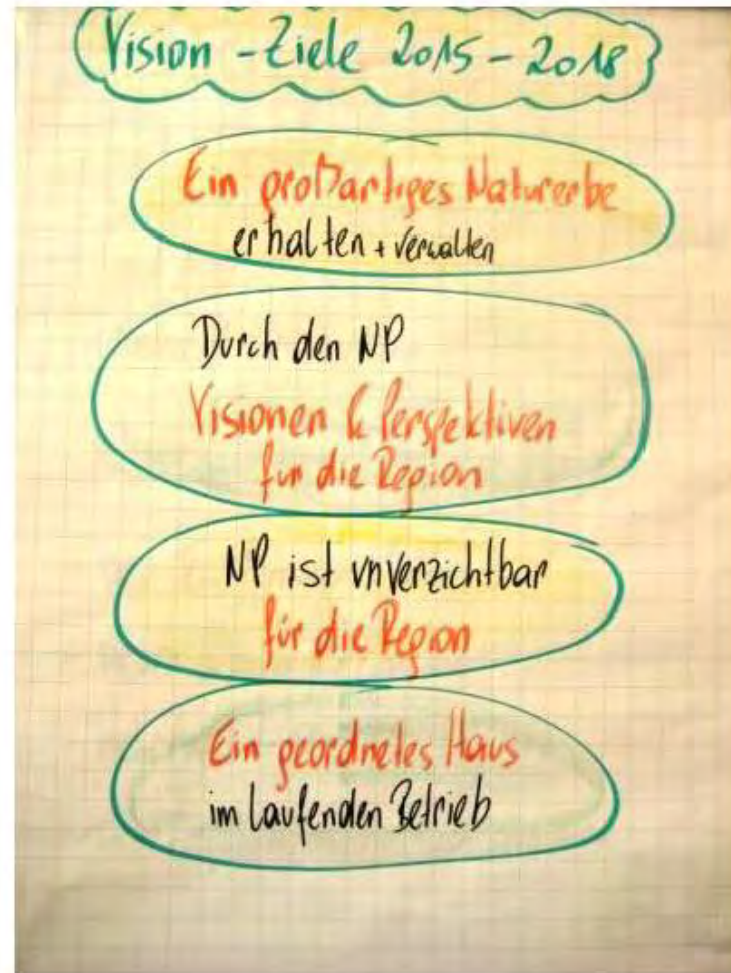 Vision - Ziele 2015 - 2018
Ein großartiges Naturerbe
erhalten + verwalten
Durch den NP
Visionen & Perspektiven
für die Region
NP ist unverzichtbar
für die Region
Ein geordnetes Haus
im laufenden Betrieb